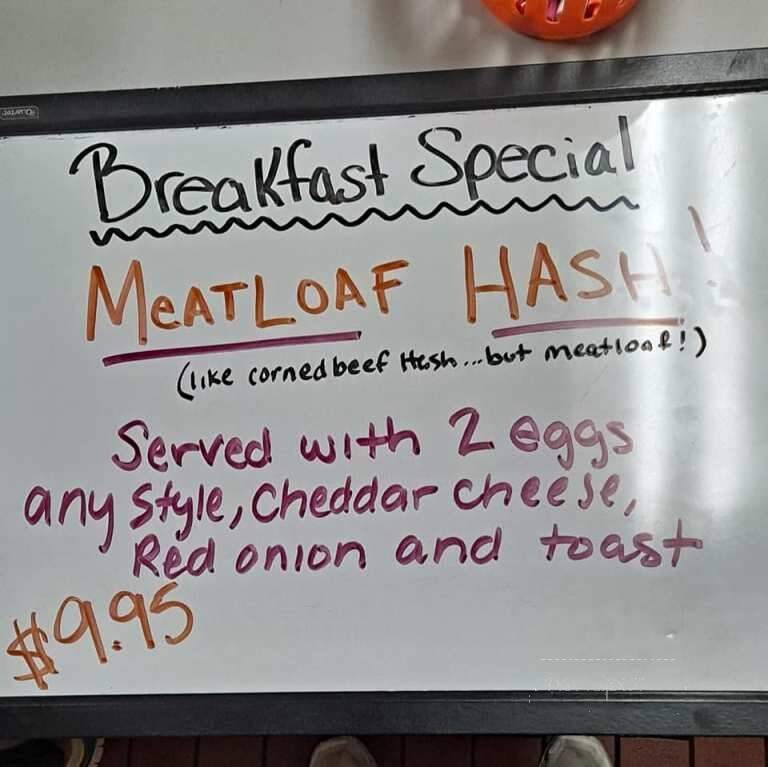 Breakfast Special
MeATLOAF HASH!
(like cornedbeef Hash...but meatloaf!)
Served with 2 eggs
any style, Cheddar cheese,
Red onion and toast
$9.95